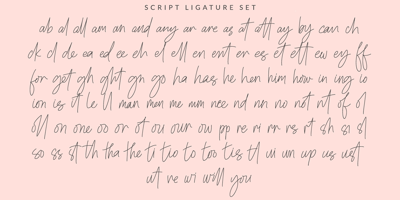 SCRIPT LIGATURE SET
ab al all am an and any ar are as at att ay by can ch
ck cl de ea ed ee eh el ell en ent er es et ett ew ey ff
for get gh ght gn go ha has he hen him how in ing io
ion is it le ll man men me mm nee nd nn no not nt of ol
oll on one oo or ot ou our ow pp re ri rr rs rt sh si sl
so ss st th tha the ti tio to too tis tl ui un up us ust
ut ve wi will you